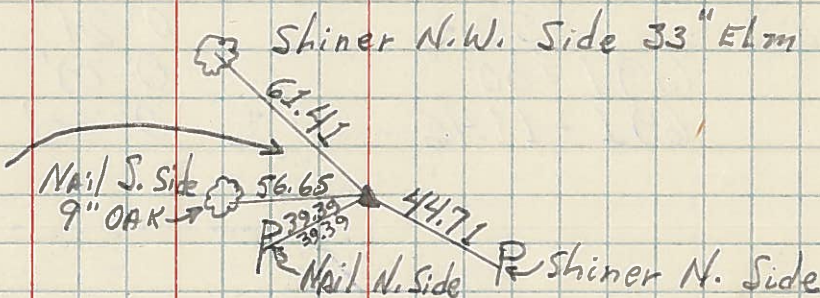 Shiner N.W. Side 33" ELm
61.41
NAil S. Side
9" OAK
56.65
39.39
39.39
44.71
NAil N. Side
Shiner N. Side